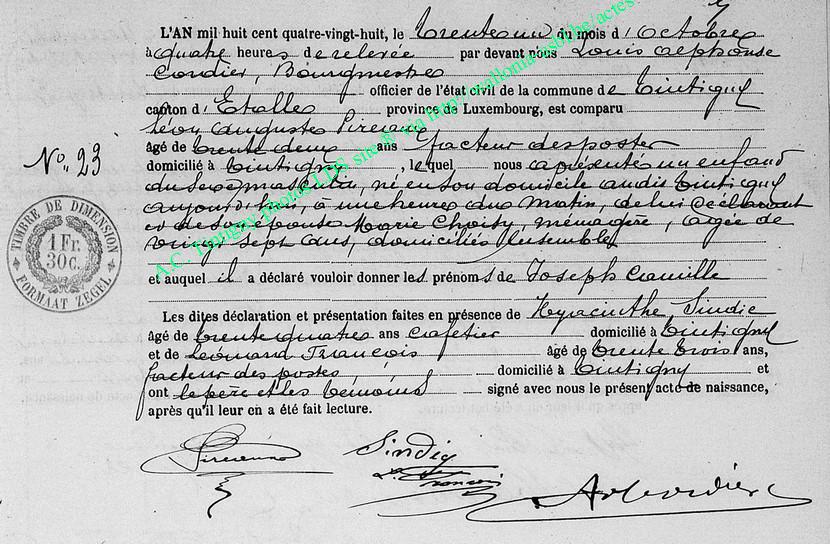 L'AN mil huit cent quatre-vingt-huit, le trente un du mois d'Octobre
à quatre heures de relevée par devant nous Louis Alphonse
Cordier, Bourgmestre
officier de l'état civil de la commune de Tintigny
canton d'Etalle province de Luxembourg, est comparu
Léon Auguste
âgé de trente deux ans facteur des postes
domicilié à Tintigny, lequel nous a présenté un enfant
du sexe masculin, né en son domicile audit Tintigny
aujourd'hui, à une heure du matin, de lui déclarant
et de son épouse Marie Choisy, ménagère, agée de
vingt sept ans, domiciliés ensemble
No. 23
TIMBRE DE DIMENSION
1 Fr.
30 C.
FORMAAT ZEGEL
et auquel il a déclaré vouloir donner les prénoms de Joseph Camille
Les dites déclaration et présentation faites en présence de Hyacinthe Sindic
âgé de trente quatre ans cafetier domicilié à Tintigny
et de Léonard François âgé de trente trois ans,
facteur des postes, domicilié à Tintigny et
ont le père et les témoins signé avec nous le présent acte de naissance,
après qu'il leur en a été fait lecture.
Sindic
François
A.C. Tintigny photos LDS site ® via http://wallonia.asbl.be/actes